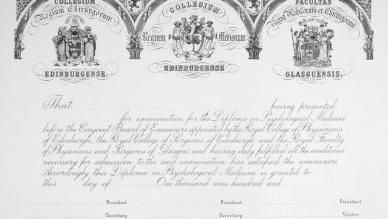 COLLEGIUM
Regium Chirurgorum
EDINBURGENSE.
COLLEGIUM
Regium Medicorum
EDINBURGENSE
FACULTAS
GLASGUENSIS.
That having presented
for examination for the Diploma in Psychological Medicine
before the Conjoint Board of Examiners appointed by the Royal College of Physicians
of Edinburgh, the Royal College of Surgeons of Edinburgh and the Royal Faculty
of Physicians and Surgeons of Glasgow, and having duly fulfilled all the conditions
necessary for admission to the said examination, has satisfied the examiners.
Accordingly this Diploma in Psychological Medicine is granted to
this day of One thousand nine hundred and
President President President
Secretary Secretary Visitor